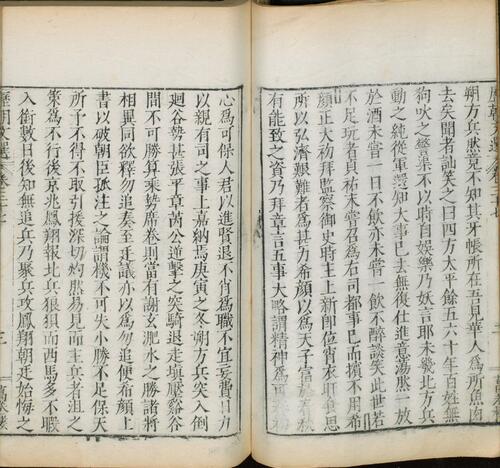 朔方兵𤍠嘗竟不知其帳所在吾見宋人爲所魚肉
去矣聞者訕笑之曰四方太平餘五六十年百姓無
狗吠之警杲不以時自娛樂乃妖言耶未幾北方兵
動之純從軍還知大事已去無復仕進意蕩然一放
於酒未嘗一日不飲亦未嘗一飲不醉談矣此世若
不足玩者貞祐末嘗召爲右司都事已而擯不用希
顏正大初拜監察御史時主上新即位宵衣旰食思
所以弘濟艱難者爲甚力希顏以爲天子富於春秋
有能致之資乃拜章言五事大略謂精神爲可
心爲可保人君以進賢退不肖爲職不宜妄費日力
以親有司之事上嘉納焉庚寅之冬朔方兵突入倒
廻谷勢甚張平章芮公逆擊之突騎退走塡壓谿谷
間不可勝筭乘勢席卷則當有謝玄淝水之勝諸將
相異同欲釋勿追奏至廷議亦以爲勿追便希顏上
書以破朝臣孤注之論謂機不可失小勝不足保天
所予不得不取引援深切灼然易見而主兵者沮之
策爲不行後京兆鳳翔報北兵狼狽而西馬多不暇
入銜數日後知無追兵乃聚兵攻鳳翔朝廷始悔之
歷朝文選
三